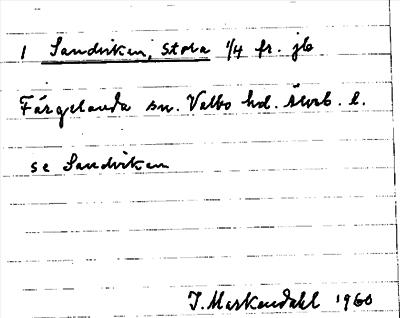 1 Sandviken, Stora 1/4 fr. jb
Färgelanda sn. Valbo hd. Älvsb. l.
se Sandviken
I. Markendahl 1960